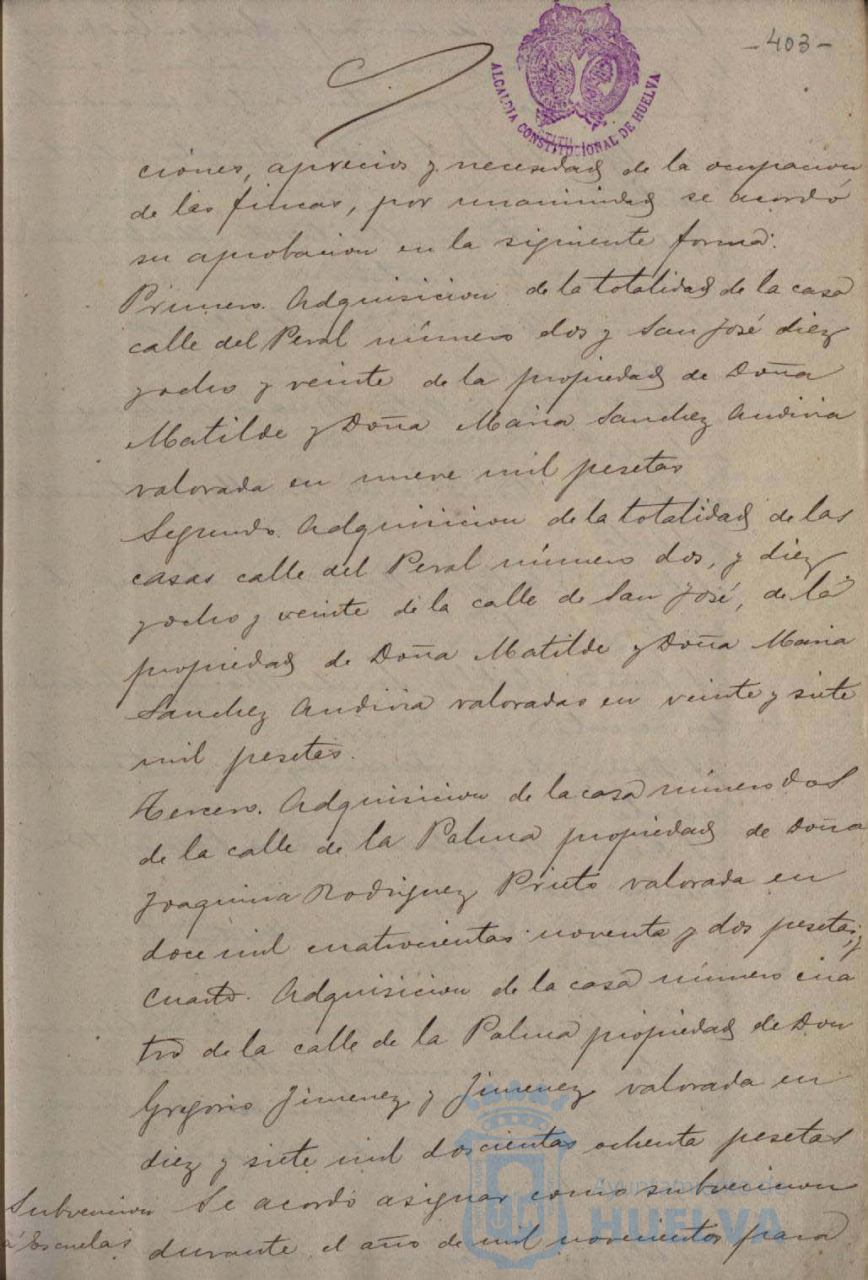 -403-
ALCALDIA CONSTITUCIONAL DE HUELVA
ciones, aprecios y necesidad de la ocupacion
de las fincas, por unanimidad se acordó
su aprobacion en la siguiente forma:
Primero. Adquisicion de la totalidad de la casa
calle del Peral número dos y San José diez
y ocho y veinte de la propiedad de Doña
Matilde y Doña Maria Sanchez Andivia
valorada en nueve mil pesetas
Segundo. Adquisicion de la totalidad de las
casas calle del Peral número dos, y diez
y ocho y veinte de la calle de San José, de la
propiedad de Doña Matilde y Doña Maria
Sanchez Andivia valoradas en veinte y siete
mil pesetas.
Tercero. Adquisicion de la casa número dos
de la calle de la Palma propiedad de Doña
Joaquina Rodriguez Prieto valorada en
doce mil cuatrocientas noventa y dos pesetas, y
Cuarto. Adquisicion de la casa número cua
tro de la calle de la Palma propiedad de Don
Gregorio Jimenez y Jimenez valorada en
diez y siete mil doscientas ochenta pesetas
Subvencion á Escuelas
Se acordó asignar como subvencion
durante el año de mil novecientos para
Ayuntamiento de
HUELVA